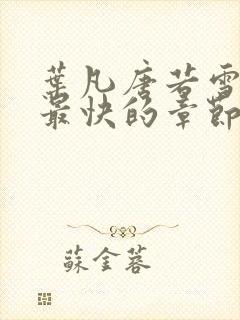 葉凡唐若雪
最快的章節
蘇金蓉